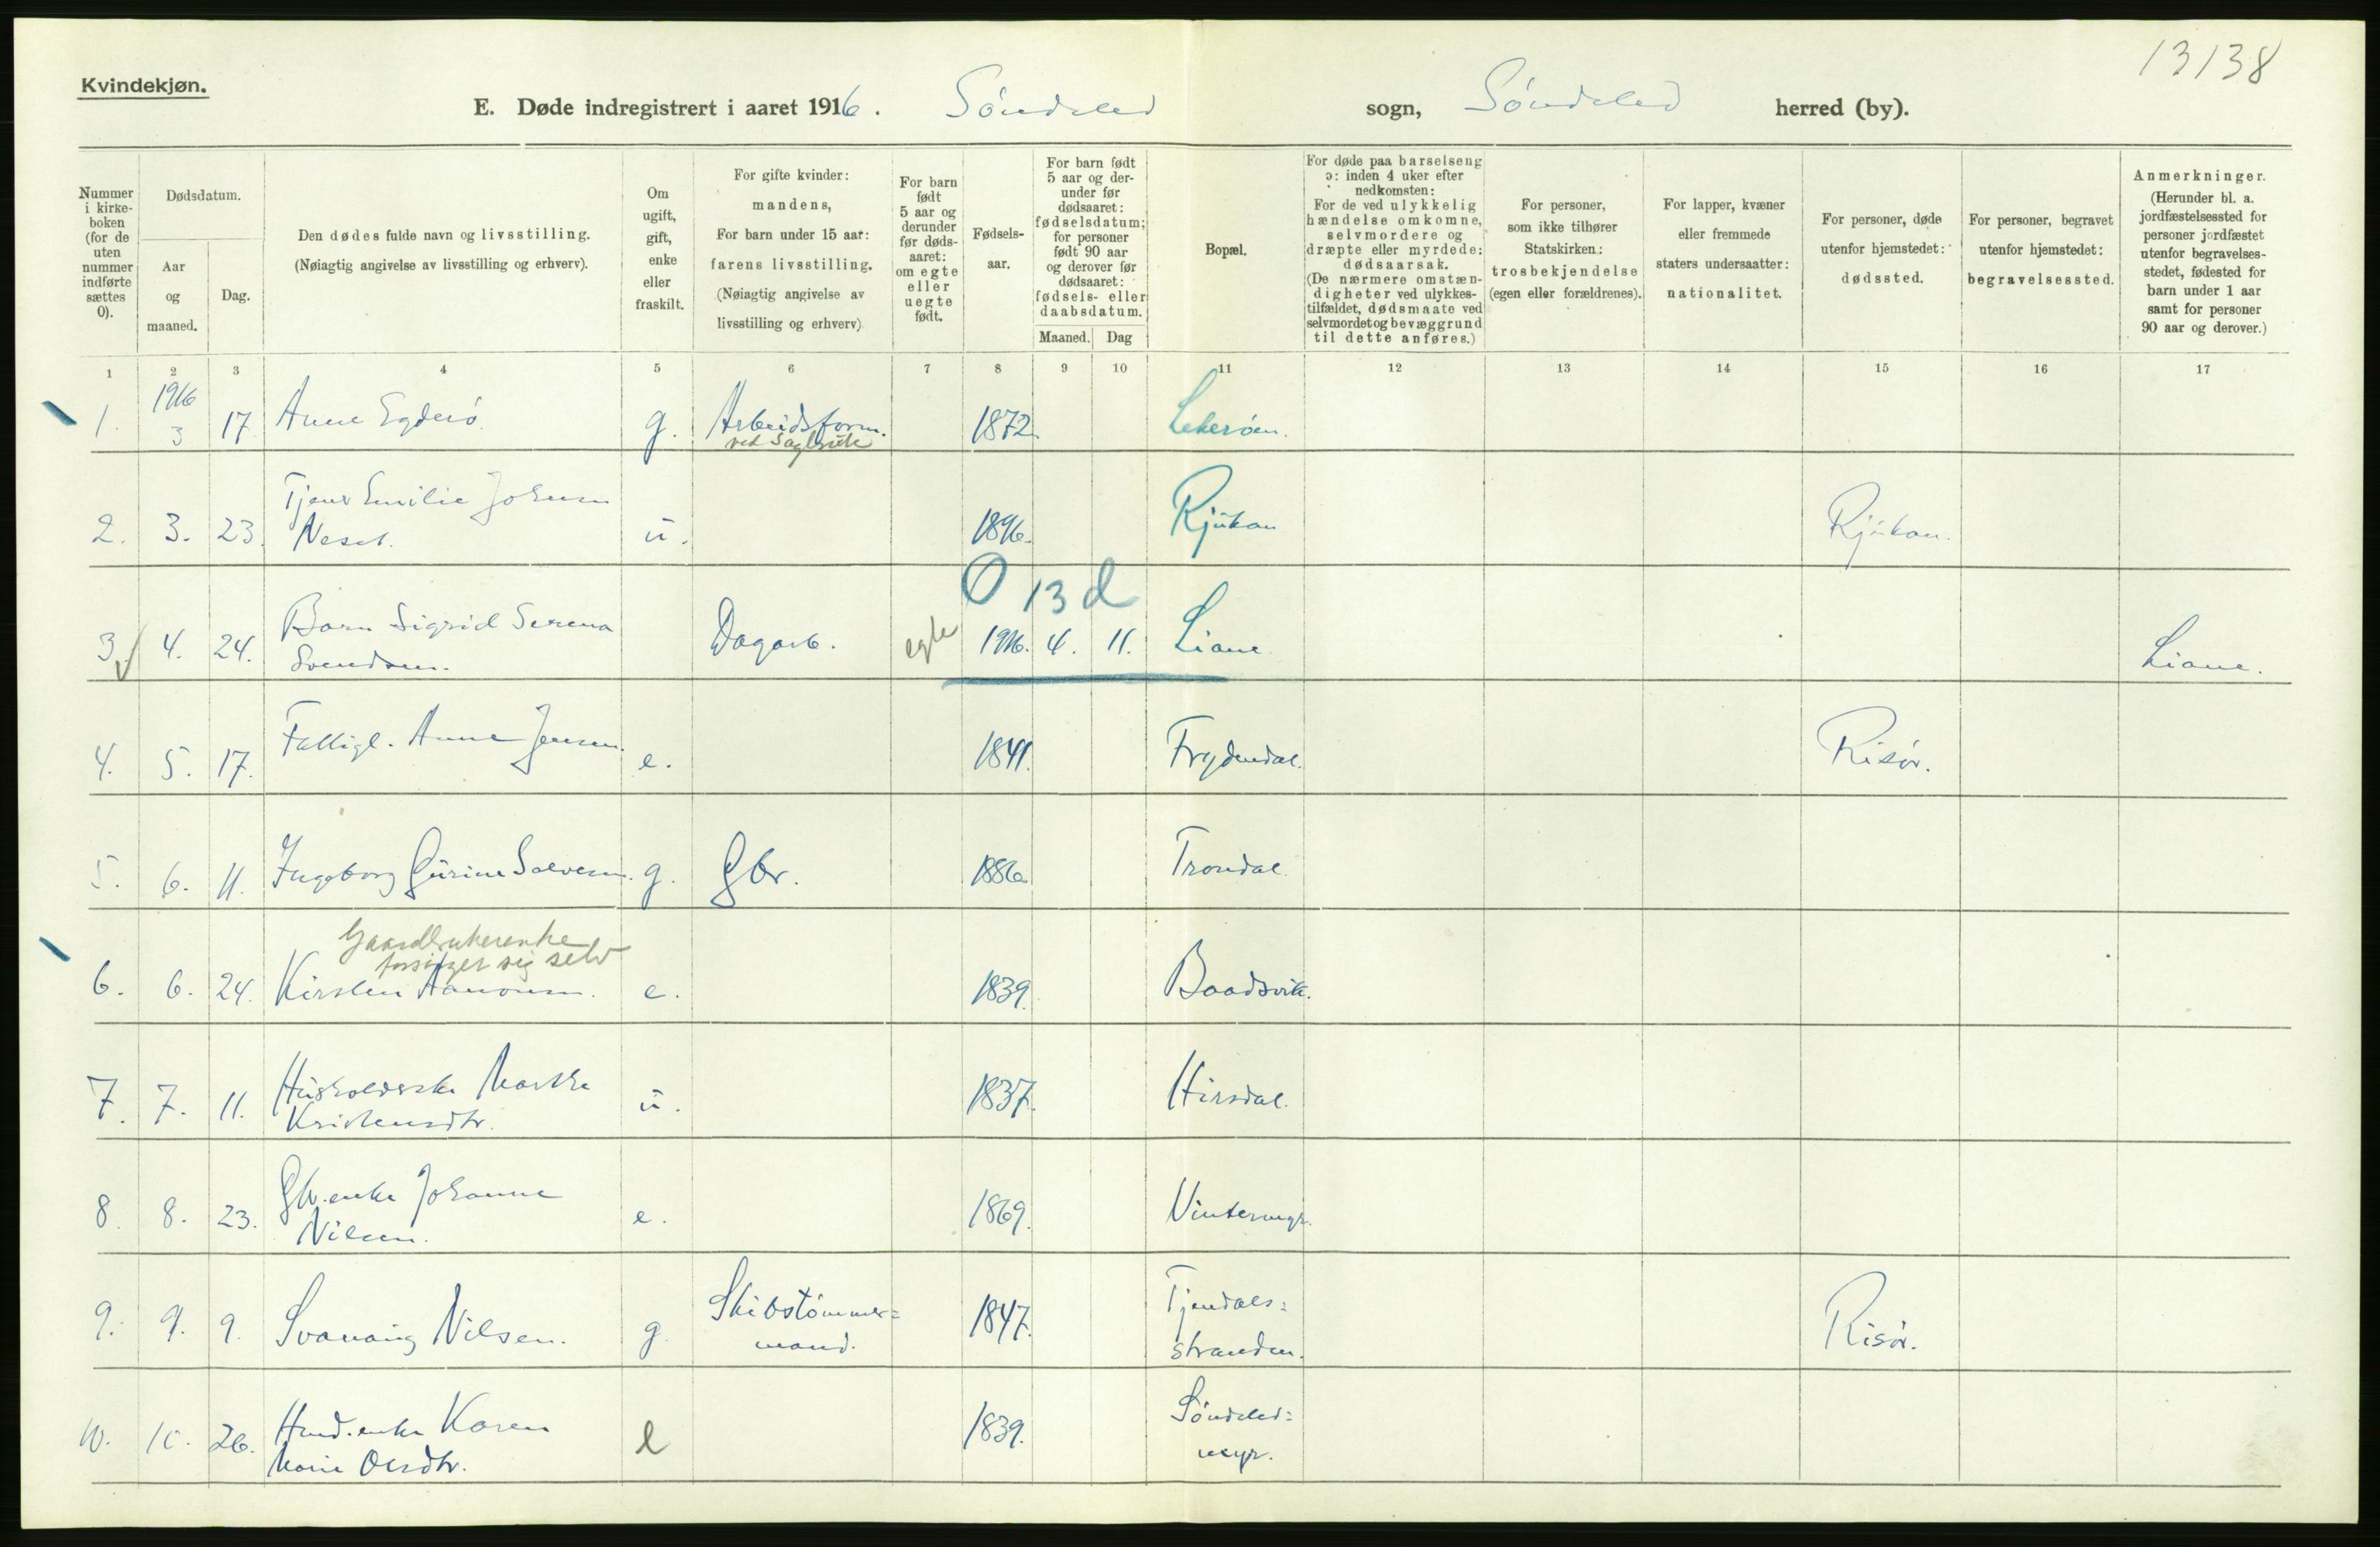 13138
Kvindekjøn.
E. Døde indregistrert i aaret 1916. Søndeled sogn, Søndeled herred (by).
Nummer i kirke-boken (for de uten nummer indførte sættes 0).
Dødsdatum.
Aar og maaned.
Dag.
Den dødes fulde navn og livsstilling.
(Nøiagtig angivelse av livsstilling og erhverv).
Om ugift, gift, enke eller fraskilt.
For gifte kvinder: mandens, For barn under 15 aar: farens livsstilling. (Nøiagtig angivelse av livsstilling og erhverv)
For barn født 5 aar og derunder før døds-aaret: om egte eller uegte født.
Fødsels-aar.
For barn født 5 aar og der-under før dødsaaret: fødselsdatum; for personer født 90 aar og derover før dødsaaret: fødsels- eller daabsdatum.
Maaned. Dag
Bopæl.
For døde paa barselseng ɔ: inden 4 uker efter nedkomsten: For de ved ulykkelig hændelse omkomne, selvmordere og dræpte eller myrdede: dødsaarsak. (De nærmere omstæn-digheter ved ulykkes-tilfældet, dødsmaate ved selvmordet og bevæggrund til dette anføres.)
For personer, som ikke tilhører Statskirken: trosbekjendelse (egen eller forældrenes).
For lapper, kvæner eller fremmede staters undersaatter: nationalitet.
For personer, døde utenfor hjemstedet: dødssted.
For personer, begravet utenfor hjemstedet: begravelsessted.
Anmerkninger. (Herunder bl. a. jordfæstelsessted for personer jordfæstet utenfor begravelses-stedet, fødested for barn under 1 aar samt for personer 90 aar og derover.)
1 2 3 4 5 6 7 8 9 10 11 12 13 14 15 16 17
1916
1. 3 17 Anne Egderö g. Arbeidsform. 1872. Lekerøen.
ved Sagbruk
Tjener Emilie Johnsen
2. 3. 23. Neset. u. 1896. Rjukan Rjukan.
0 13 d
Barn Sigrid Serena
3 4. 24. Svendsen. Dagarb. egte 1916. 4. 11. Liane Liane.
4. 5. 17. Fattigl. Anne Jensen. e. 1841. Frydendal. Risør.
5. 6. 11. Ingeborg Gurine Solvesen. g. Gbr. 1886 Trondal.
Gaardbrukerenke
forsörger sig selv
6. 6. 24. Kirsten Aanonsen. e. 1839. Baadsvik.
Husholderske Marthe
7. 7. 11. Kristensdtr. u. 1837. Hirsdal.
Gbr.enke Johanne
8. 8. 23. Nilsen. e. 1869. Vintermyr.
9. 9. 9. Svanaug Nilsen. g. Skibstömmer= 1847. Tjendals= Risør.
mand. stranden.
Hmd.enke Karen Söndeled=
10. 10. 26. Marie Olsdtr. e 1839. myr.